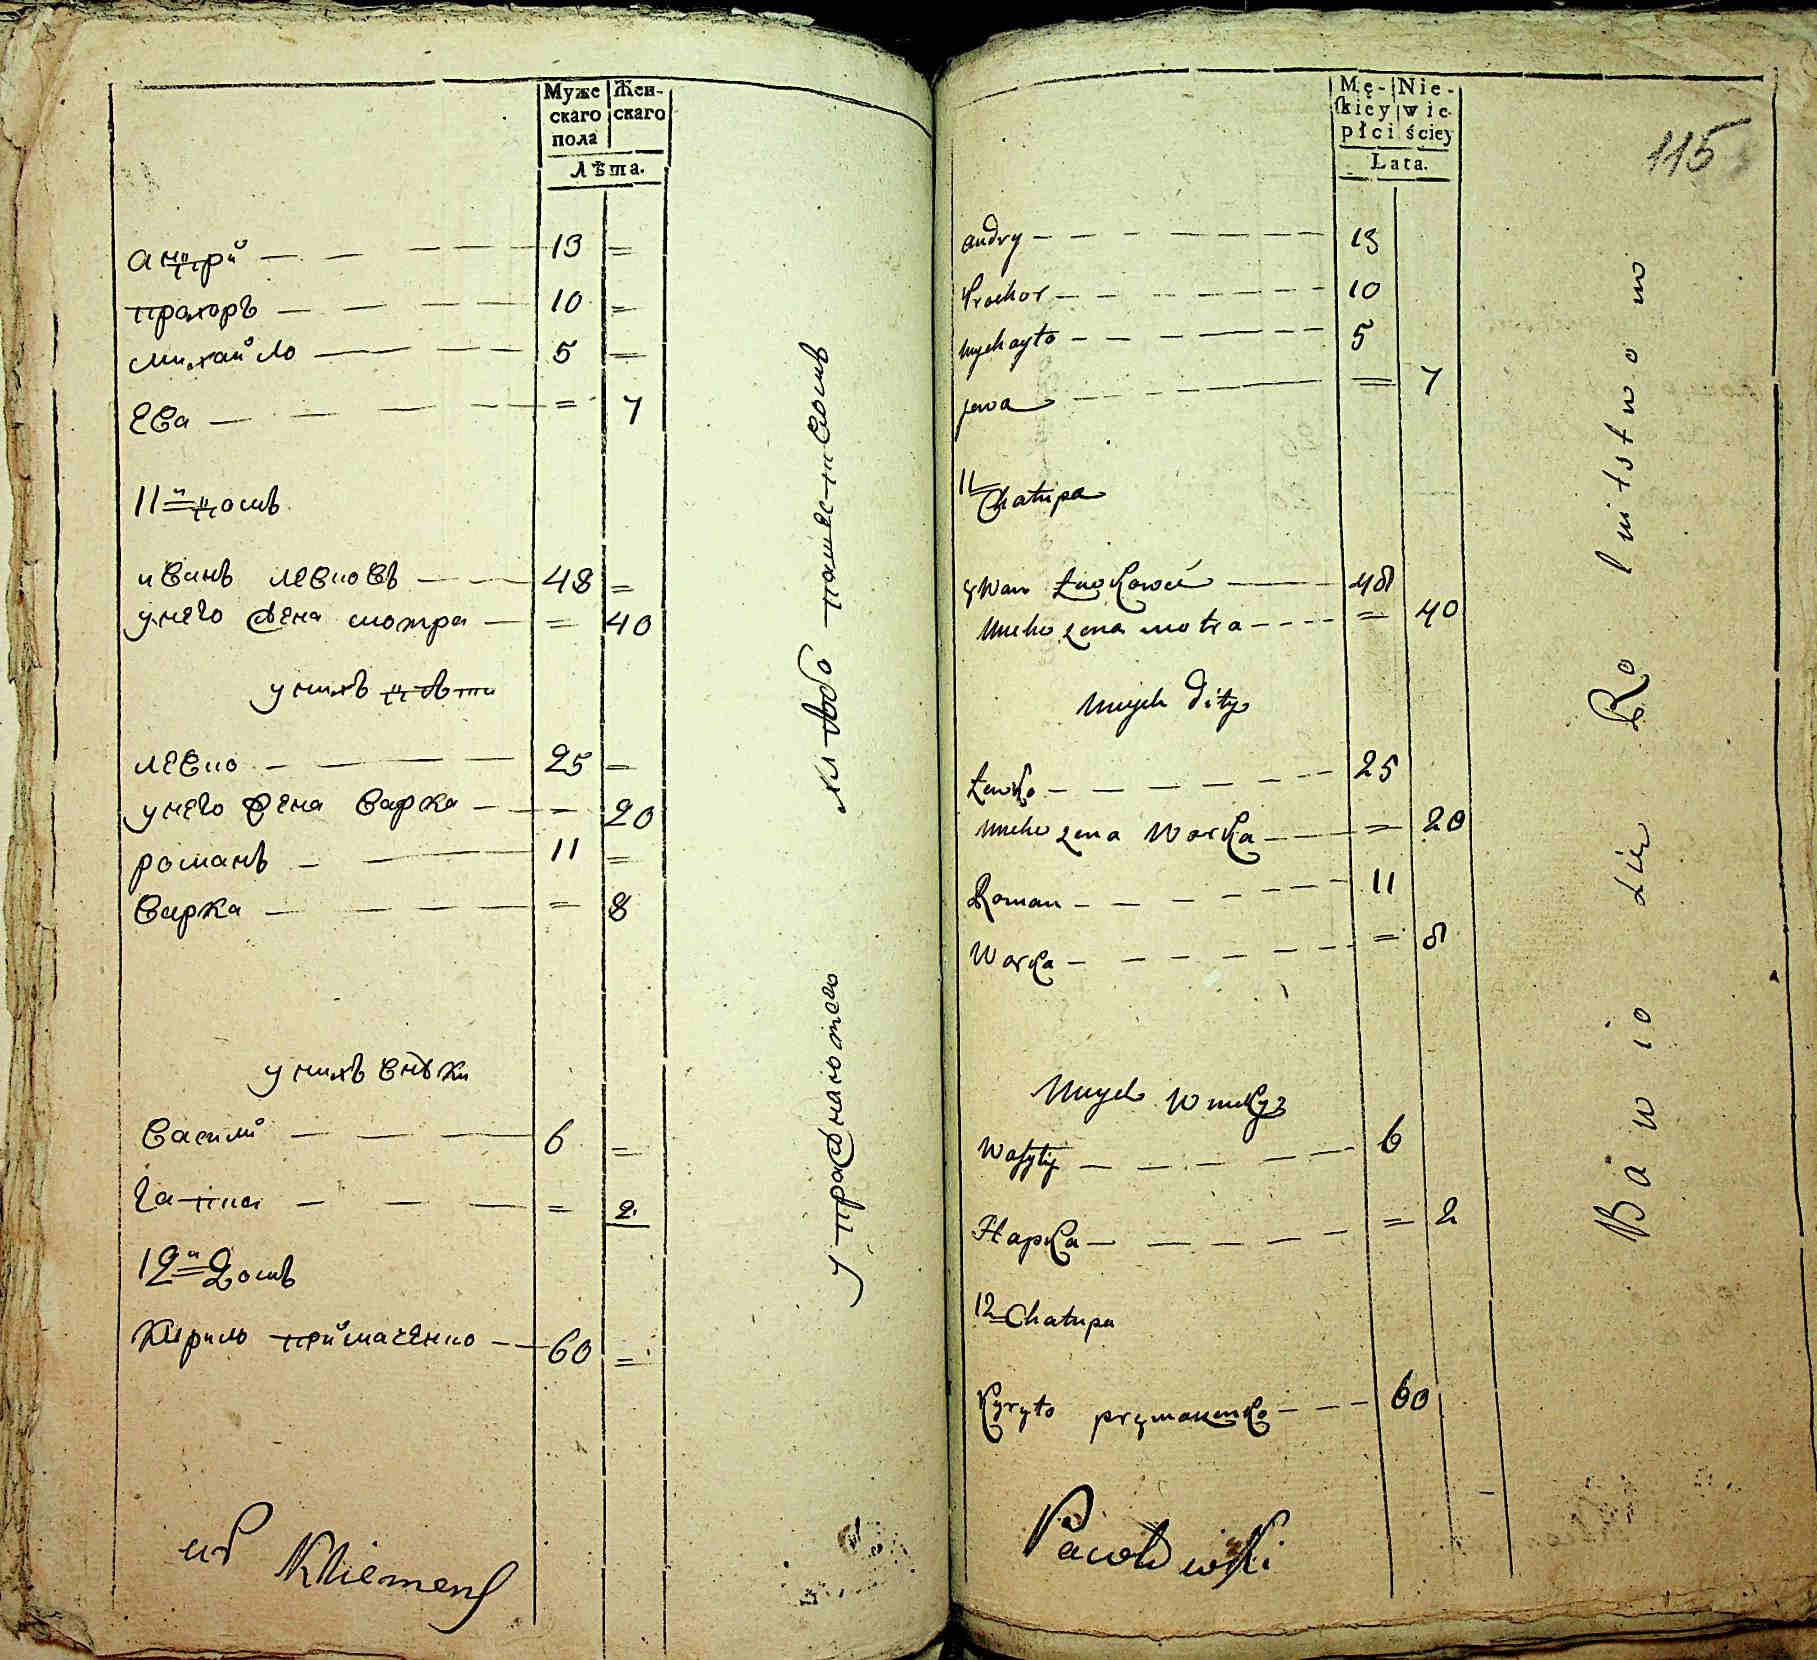 Муже
скаго
пола
Жен-
скаго
Лѣта.
андрй — — — 13 =
прохоръ — — — 10 =
михайло — — — 5 =
Ева — — — = 7
11й домъ
иванъ левковъ — — 48 =
унего жена мотра — = 40
унихъ дѣти
левко — — — 25 =
унего жена варка — = 20
романъ — — 11 =
варка — — — = 8
унихъ внѣки
Василй — — — 6 =
гапка — — — = 2
12й домъ
Кирило приймаченко — — 60 =
Kliemens
упражнаютего
хлѣбопашеством
Mę-
skiey
płci
Nie-
wie-
ściey
Lata.
115
andry — — — 13
Prochor — — — 10
mychayło — — — 5
jewa — — — = 7
11 Chatupa
ywan Łewkowić — 48
uneho zena motra — — = 40
unych dity
Łewko — — — 25
uneho zena Warka — = 20
Roman — — — 11
Warka — — — = 8
unych wnukyz
Wasyly — — — 6
Hapka — — — = 2
12 Chatupa
Kyryło prymaczenko — — 60
Pawłowski
Bawio sie Rolnitstwom